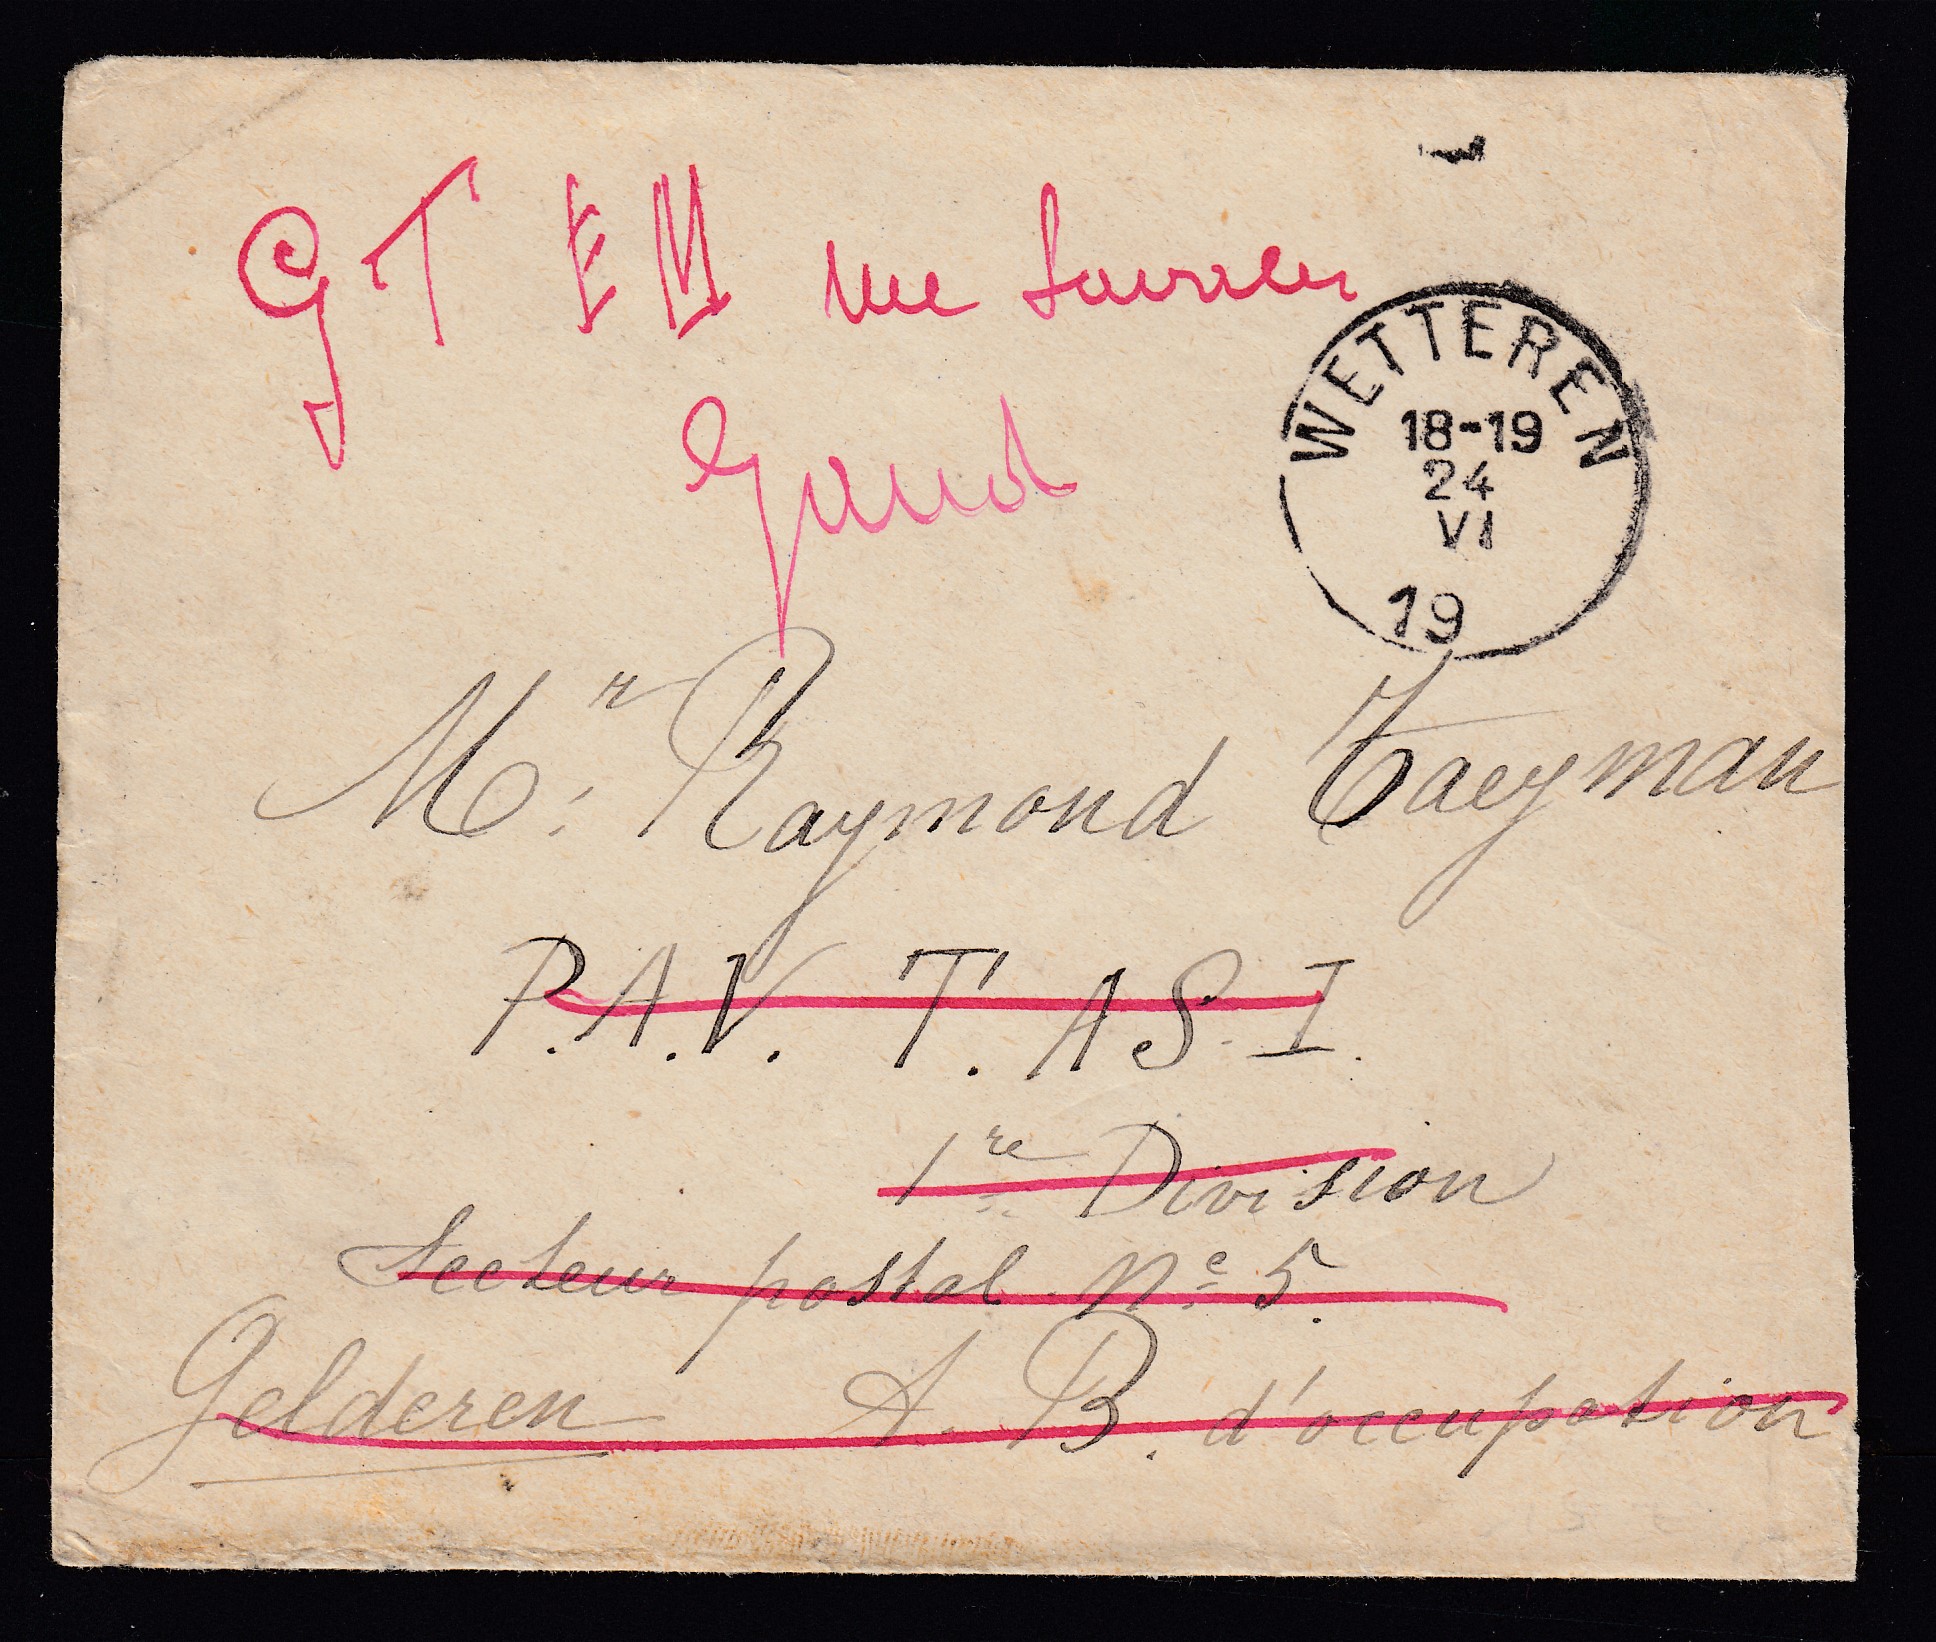 G T E M rue
Gand
WETTEREN
18-19
24
VI
19
Mr. Raymond Taeyman
P.A.V. T. A S. I.
1re Division
Secteur postal No 5.
Gelderen A. B. d'occupation